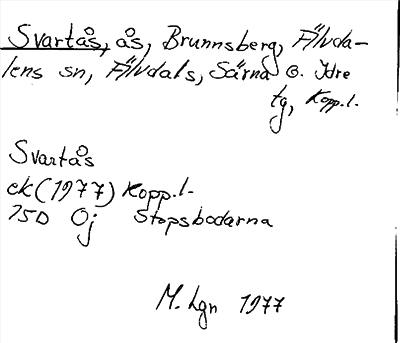 Svartås, ås, Brunnsberg, Älvda-
lens sn, Älvdals, Särna o. Idre
tg, Kopp.l.
Svartås
ek (1977) Kopp.l.
15D 0j Stopsbodarna
M. Lgn 1977